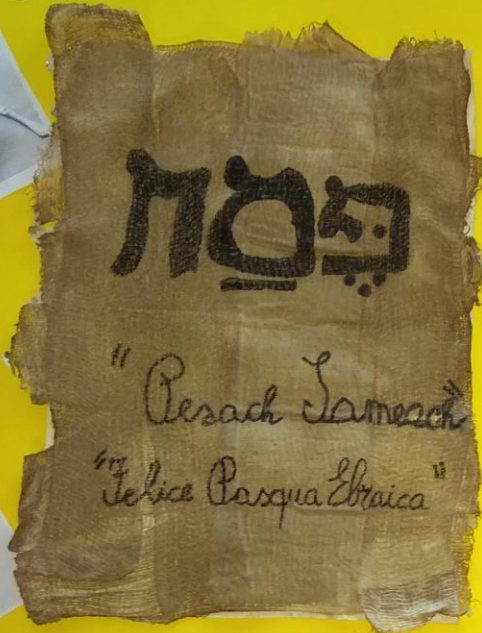 פֶּסַח
"Pesach Sameach"
"Felice Pasqua Ebraica"